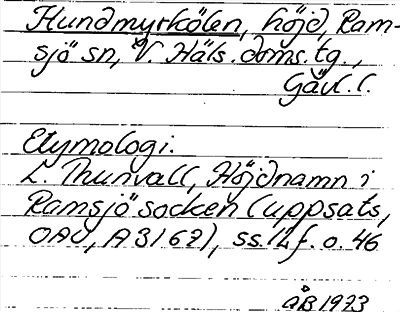 Hundmyrkölen, höjd, Ram-
sjö sn, V. Häls. doms.tg.,
Gävl. l.
Etymologi.
L. Thunvall, Höjdnamn i
Ramsjö socken (uppsats,
OAU, A 3162), ss. 14f. o. 46
ÅB 1973